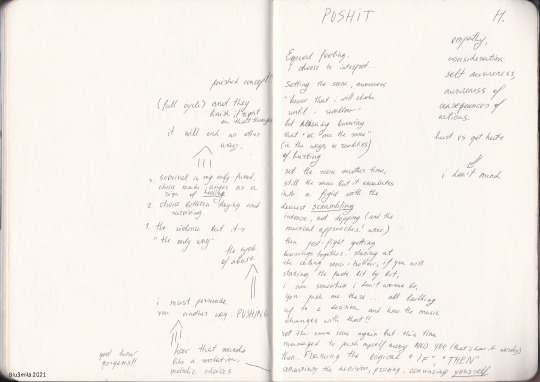 pushed concept!
(full cycle) and they
finish it right
on that thought
it will end no other
way.
3. survival is my only friend.
choice made: anger as a
sign of healing
2. choice between staying and
surviving
1. the violence but it's
"the only way"
the cycle
of abuse
i must persuade
you another way: PUSHING
god how
gorgeous!!
how that sounds
like a revelation,
melodic choices
Blu3mila 2021
PUSHIT
M.
Equal footing,
I choose to interpret...
Setting the scene, awareness
"know that i will choke
until i swallow"
but already knowing
that "we are the same"
(in the ways or realities)
of hurting
set the scene another time,
still the same but it escalates
into a fight with the
desired scrambling
intense, not stopping (and the
musical approaches! wow)
then post-fight getting
bearings together, staring at
the ceiling semi-hollow, if you will
stating the facts bit by bit,
i am somewhere i don't wanna be,
you push me there... all building
up to a decision and how the music
changes with that!!
set the same scene again but this time
managed to push myself away AND YOU (that's how it needs)
then. Forming the logical "IF" "THEN"
consisting the decision, proving, convincing yourself
empathy,
consideration
self awareness,
awareness of
consequences of
actions.
hurt vs get hurt
i don't mind